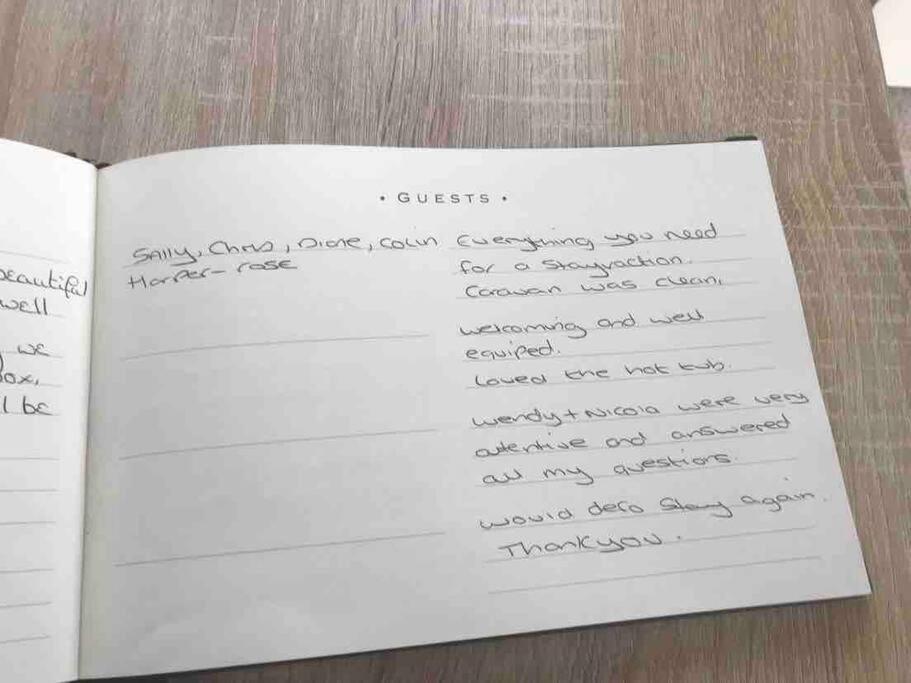 beautiful
well
we
box,
l be
• GUESTS •
Sally, Chris, Diane, Colin
Harper-rose
Everything you need
for a Stayvaction.
Caravan was clean,
welcoming and well
equiped.
Loved the hot tub.
Wendy + Nicola were very
attentive and answered
all my questions.
Would defo Stay again.
Thankyou.